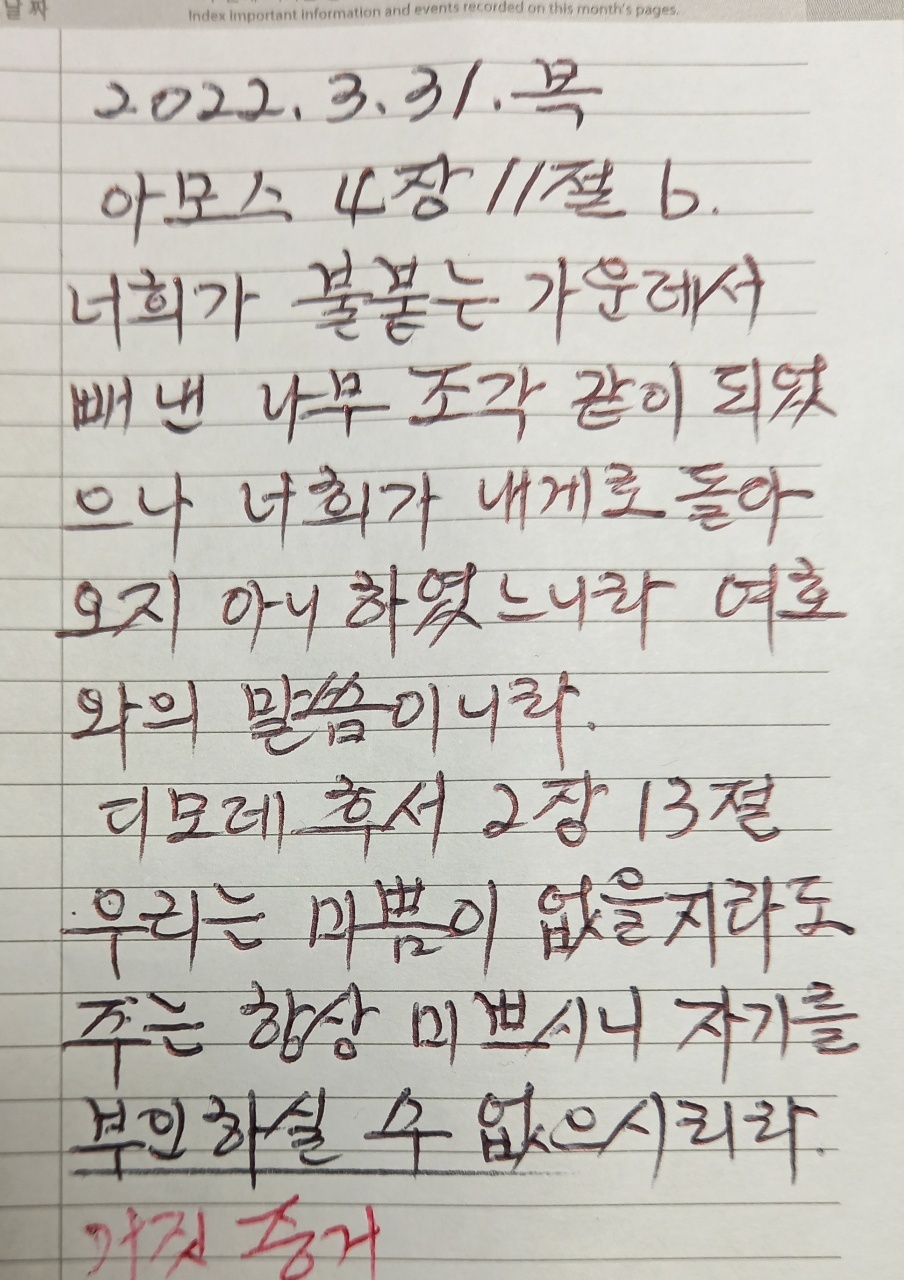 날짜
Index important information and events recorded on this month's pages.
2022. 3. 31. 목
아모스 4장 11절 b.
너희가 불붙는 가운데서
빼낸 나무 조각 같이 되었
으나 너희가 내게로 돌아
오지 아니하였느니라 여호
와의 말씀이니라.
디모데후서 2장 13절
우리는 미쁨이 없을지라도
주는 항상 미쁘시니 자기를
부인하실 수 없으시리라.
거짓 증거